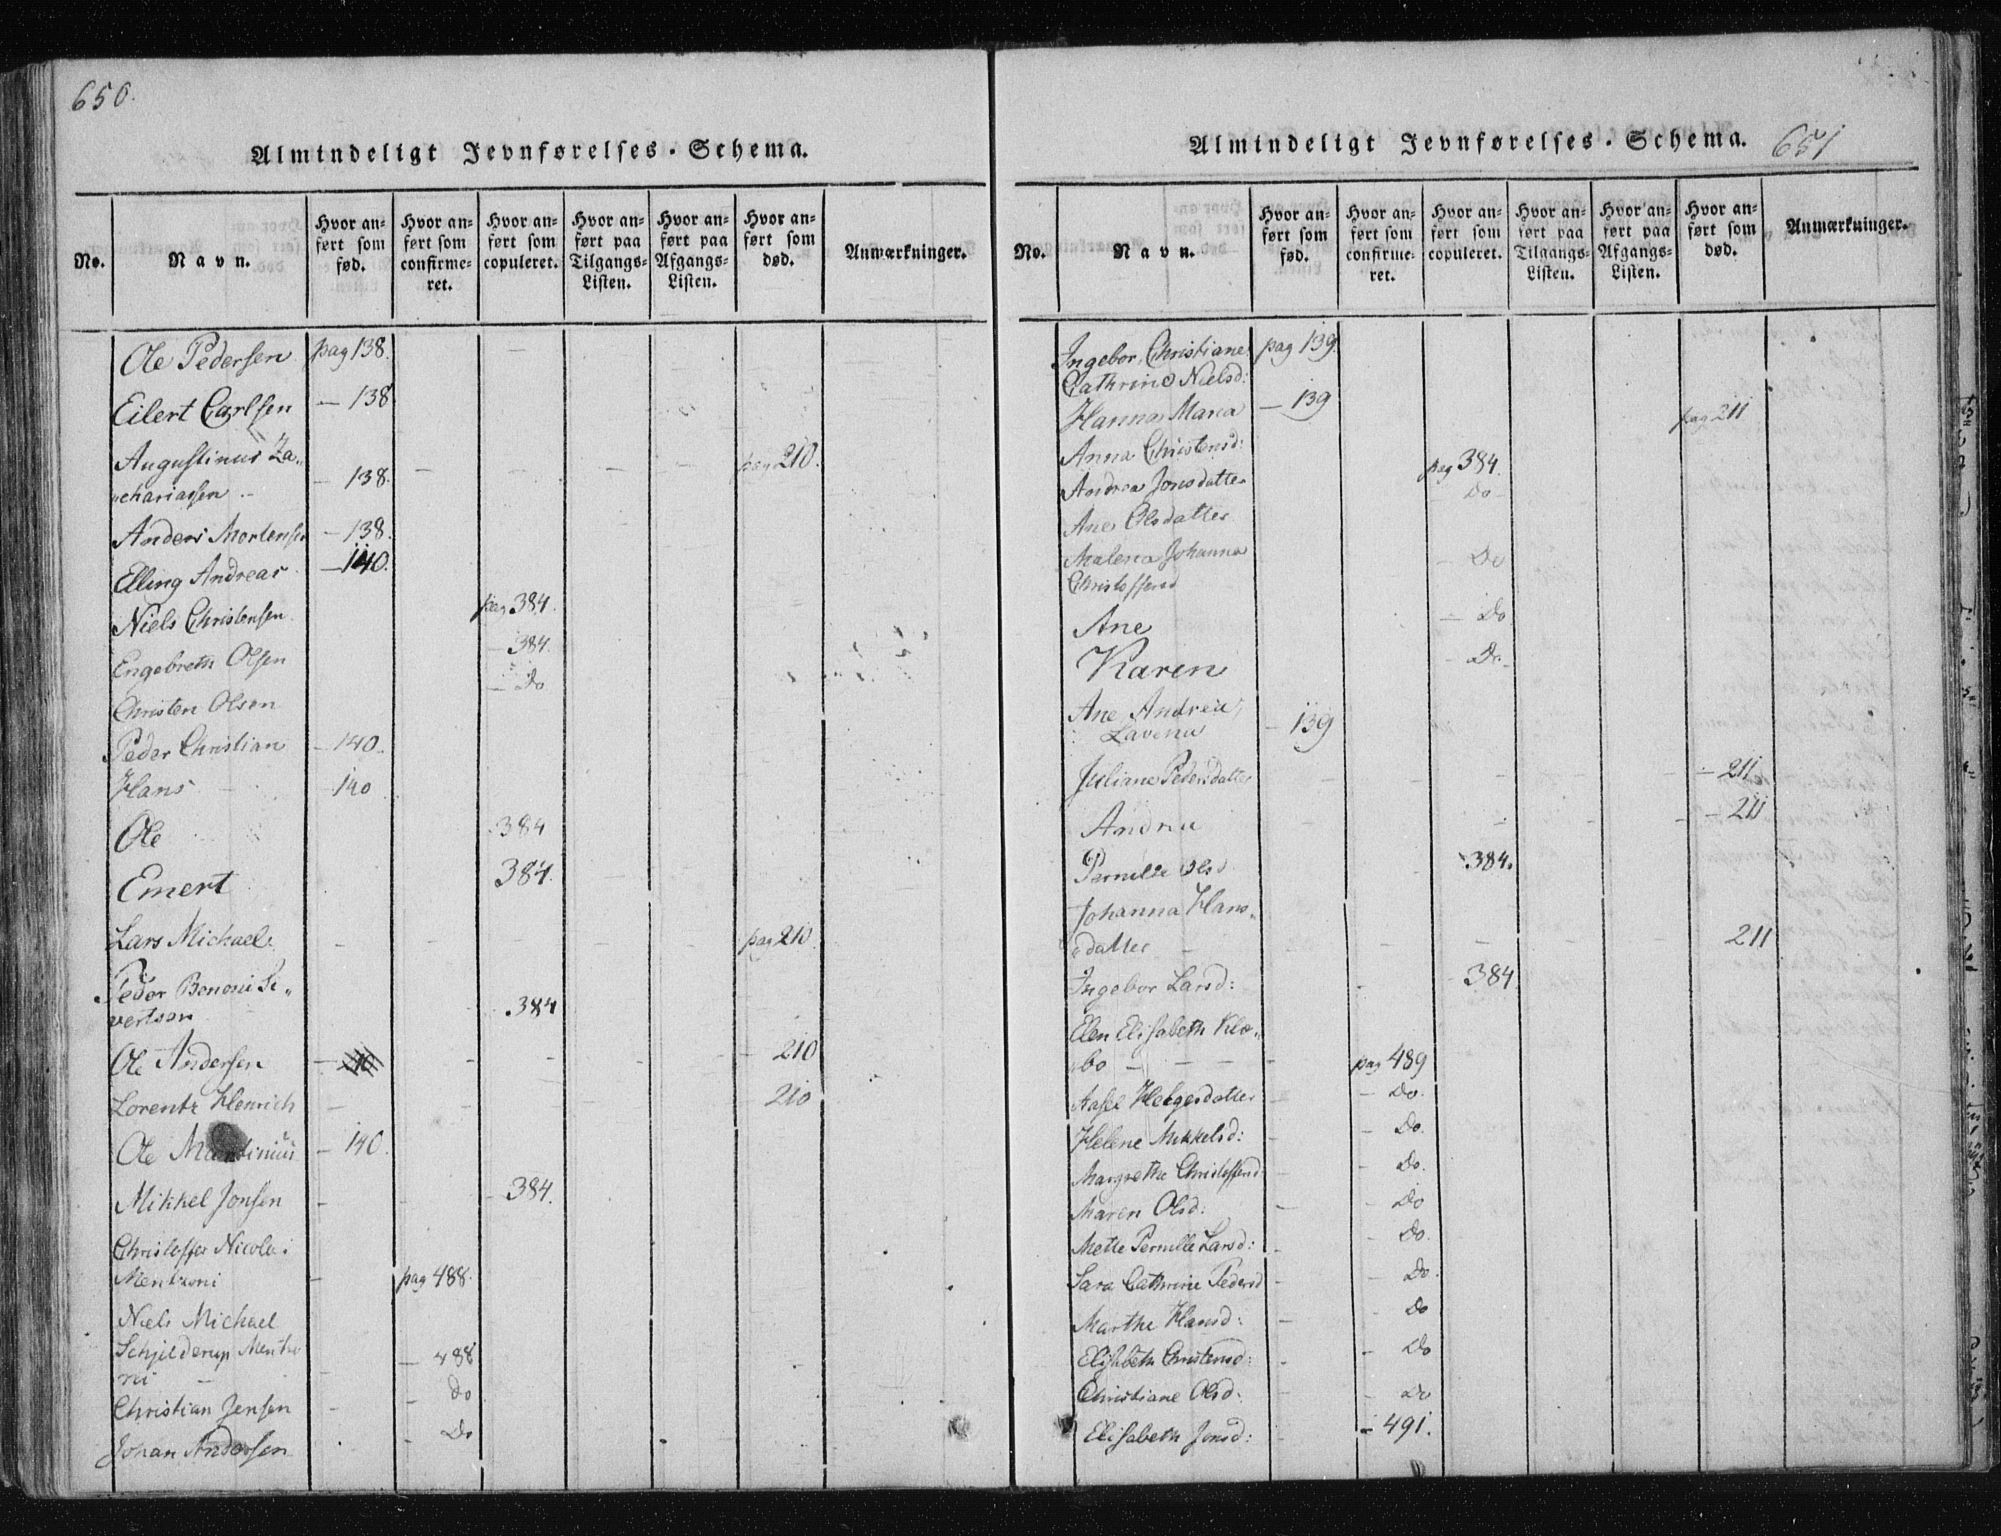 650.
Almindeligt Jevnførelses-Schema.
No.
Navn.
Hvor anført som fød.
Hvor anført som confirmeret.
Hvor anført som copuleret.
Hvor anført paa Tilgangs-Listen.
Hvor anført paa Afgangs-Listen.
Hvor anført som død.
Anmærkninger.
Ole Pedersen pag 138.
Eilert Carlsen — 138
Augustinus Za„
„chariassen — 138. pag 210.
Anders Mortensen — 138.
Elling Andreas — 140.
Niels Christensen pag 384.
Engebreth Olsen — 384.
Christen Olsen — Do
Peder Christian — 140.
Hans 140
Ole 384
Emert 384.
Lars Michael pag 210.
Peder Benoni Si„
vertsen 384
Ole Andersen — 210
Lorentz Henrich 210
Ole Martinius — 140.
Mikkel Jonsen — 384.
Christoffer Nicolai
Mentzoni pag 488.
Niels Michael
Schjelderup Mentzo
ni — 488
Christian Jensen — Do
Johan Andersen — Do
Almindeligt Jevnførelses-Schema. 651
No.
Navn.
Hvor anført som fød.
Hvor anført som confirmeret.
Hvor anført som copuleret.
Hvor anført paa Tilgangs-Listen.
Hvor anført paa Afgangs-Listen.
Hvor anført som død.
Anmærkninger.
Ingebor Christiane pag 139.
Cathrine Nielsd:
Hanna Maria — 139 pag 211
Anna Christensd: pag 384.
Andrea Jonsdatter Do
Ane Olsdatter
Malena Johanna — Do
Christoffersd
Ane — Do
Karen — Do
Ane Andrea
Lavena — 139
Juliane Pedersdatter — 211
Andrea — 211
Pernille Olsd 384.
Johanna Hans„
„datter 211
Ingebor Larsd: — 384.
Elen Elisabeth Klæ„
„bo pag 489
Aasel Helgesdatter — Do.
Helene Mikkelsd: — Do.
Margrethe Christoffersd — Do.
Maren Olsd: — Do
Mette Pernille Larsd: — Do.
Sara Cathrine Pedersd — Do.
Marthe Hansd: — Do
Elisabeth Christensd: — Do
Christiane Olsd: — Do
Elisabeth Jonsd: — 491.